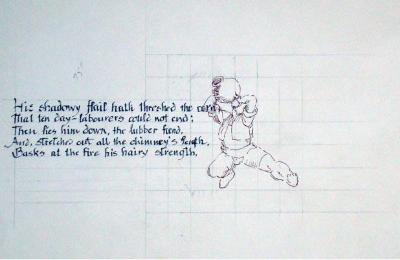 His shadowy flail hath threshed the corn
That ten day-labourers could not end;
Then lies him down, the lubber fiend,
And, stretched out all the chimney's length,
Basks at the fire his hairy strength.